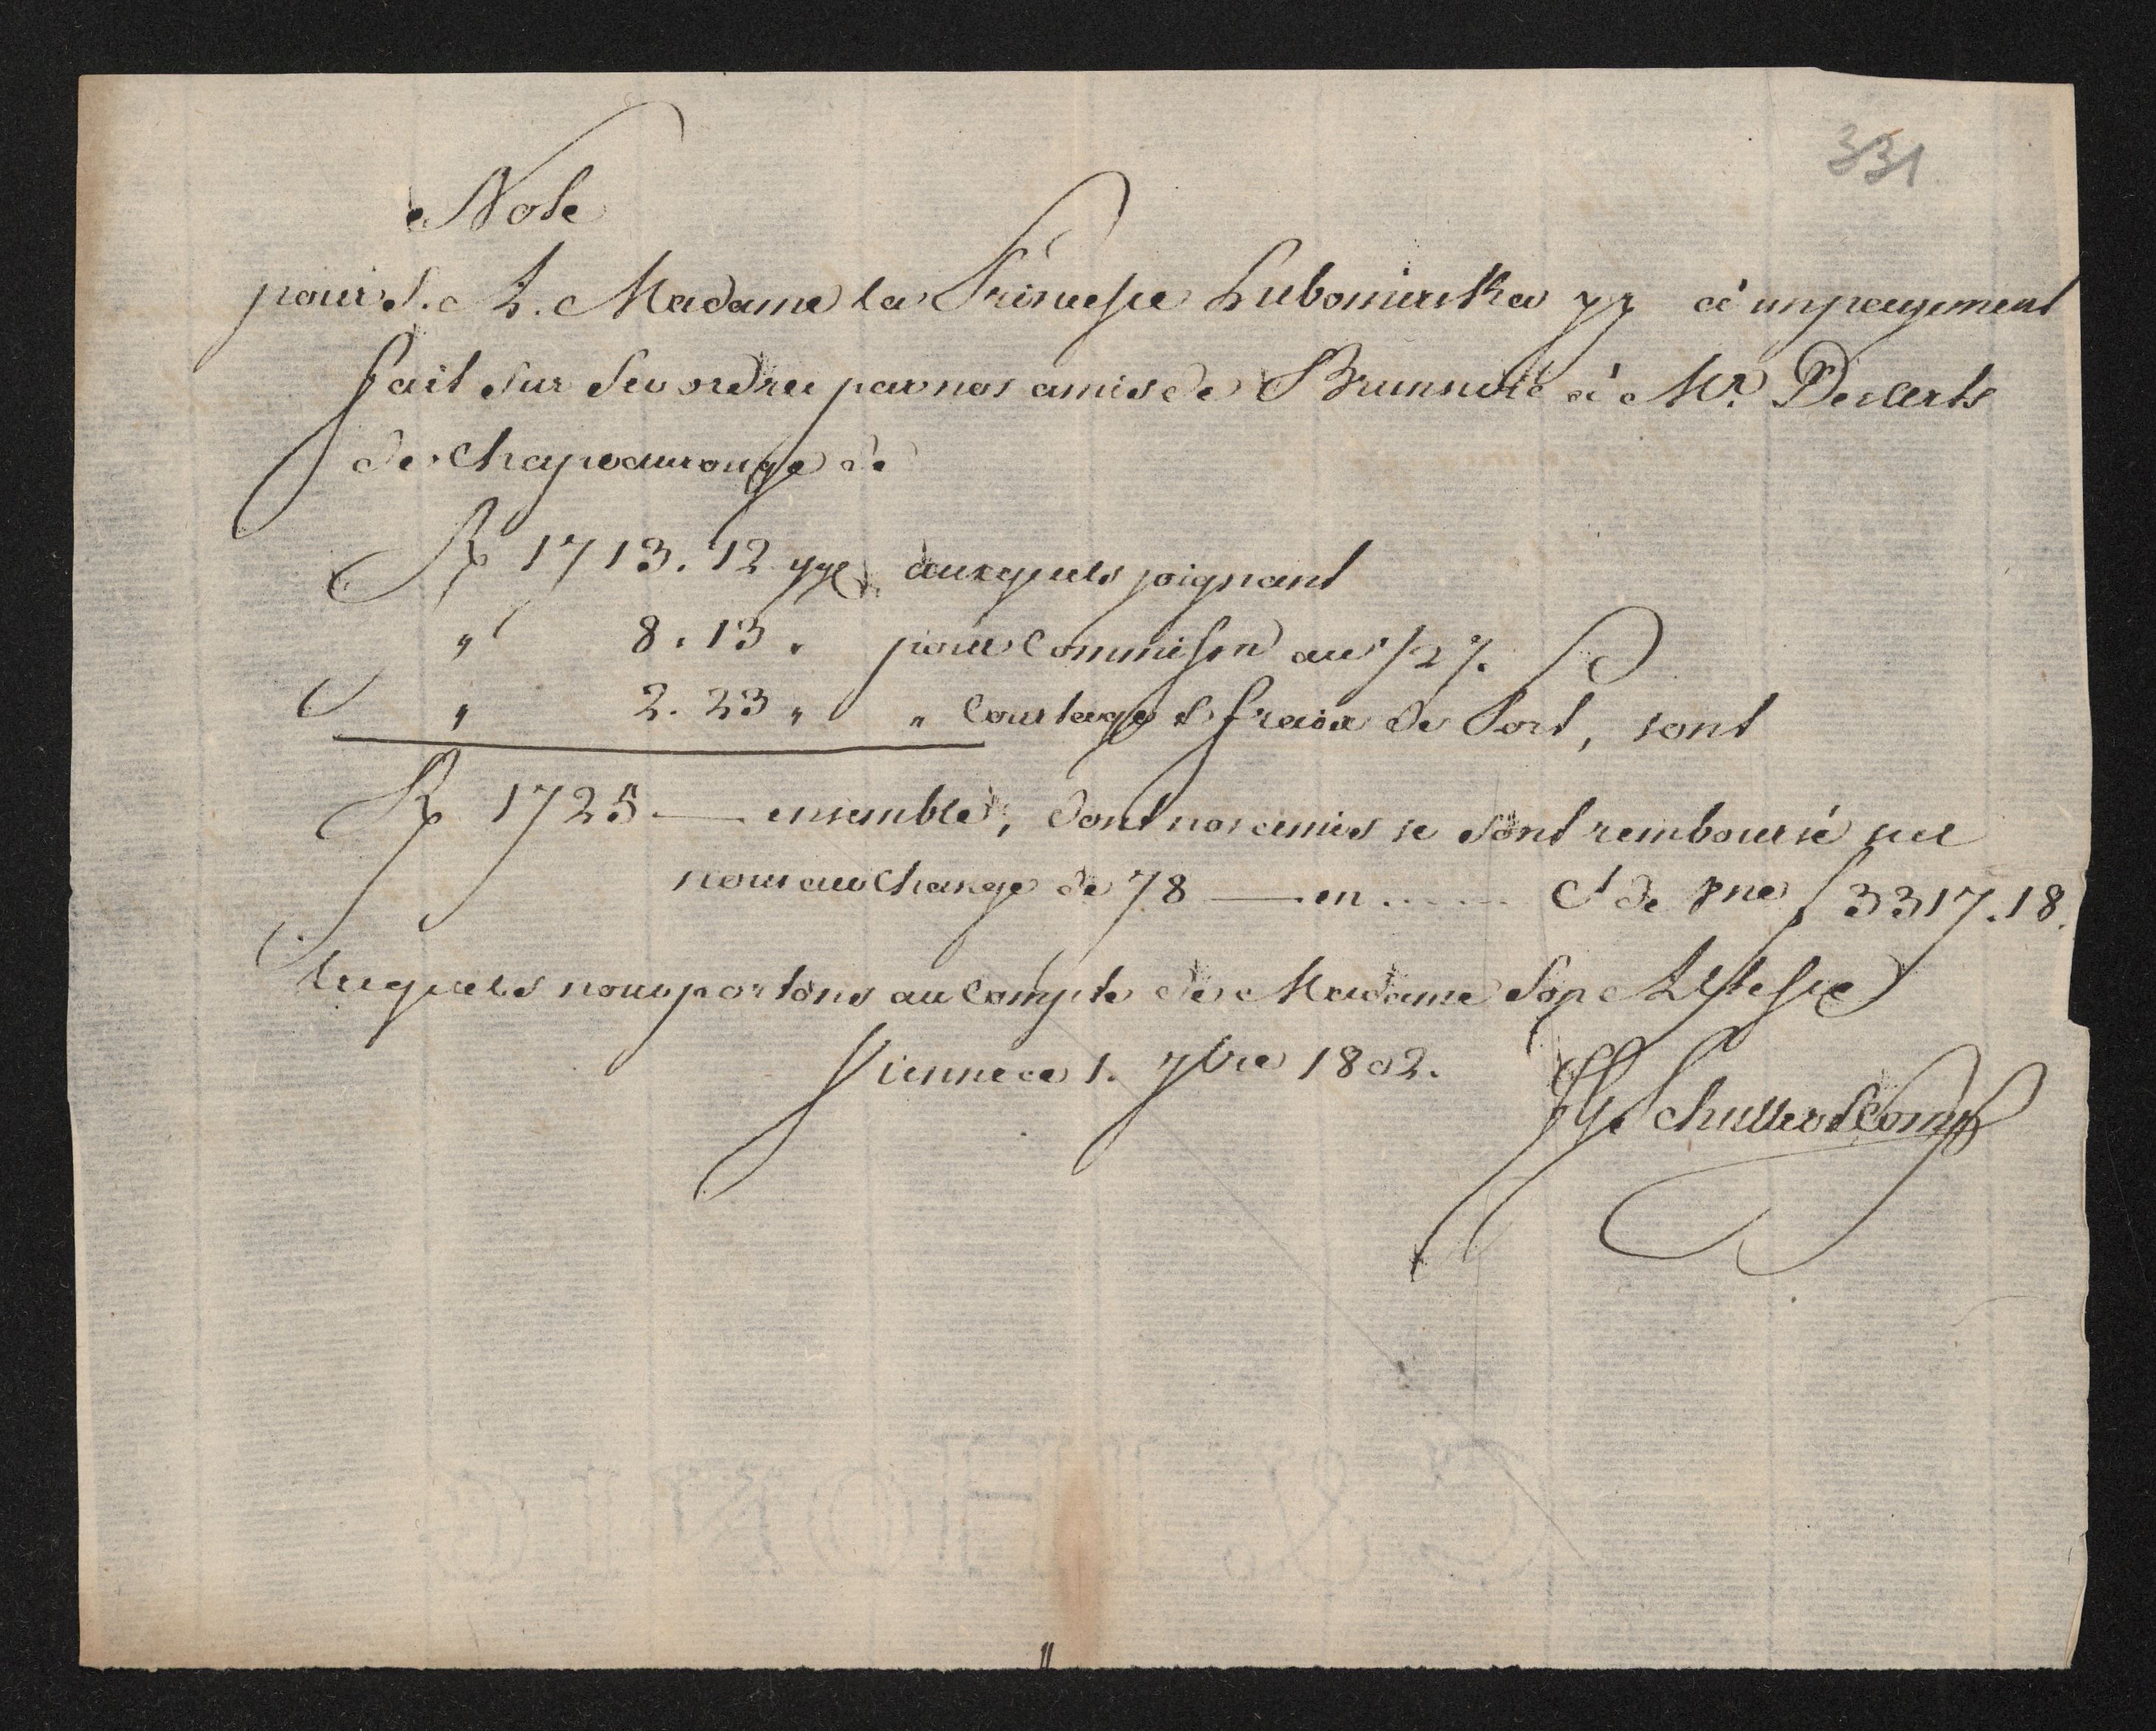 331
Note
pour S. A. Madame la Princesse Lubomirska à un payement
fait sur Ses ordres par nos amis de à Mr. Decerts
de Chapeaurouge de
R 1713. 12 auxquels joignant
" 8. 13 " pour Commission au 1/2 %.
" 2. 23 " " Courtage & fraix de Port, sont
R 1725 — ensemble, dont nos amis se sont remboursé sur
nous au Change de 78 — en ..... Ct de f 3317.18.
lesquels nous portons au Compte de Madame Son Altesse
Vienne ce 1. 7bre 1802.
Schuller & Comp